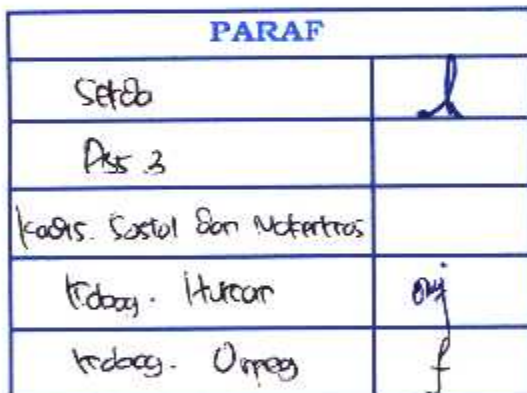 PARAF
Setda
Ass. 3
Kadis. Sosial Dan Nakertras
Kabag. Hukum
Kabag. Umpeg